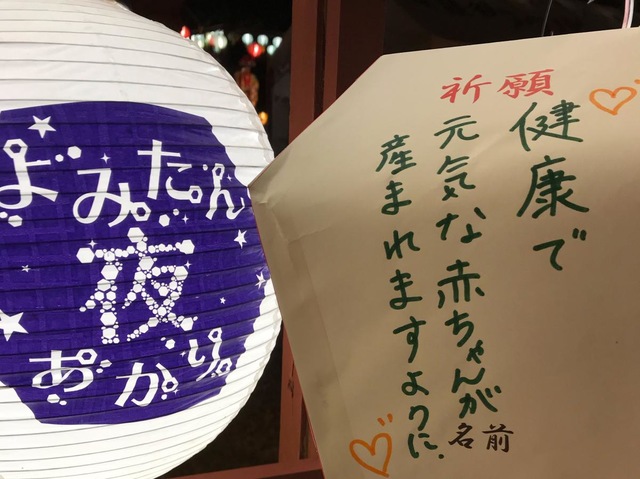 よみたん
夜
あかり。
祈願
健康で
元気な赤ちゃんが
産まれますように.
名前